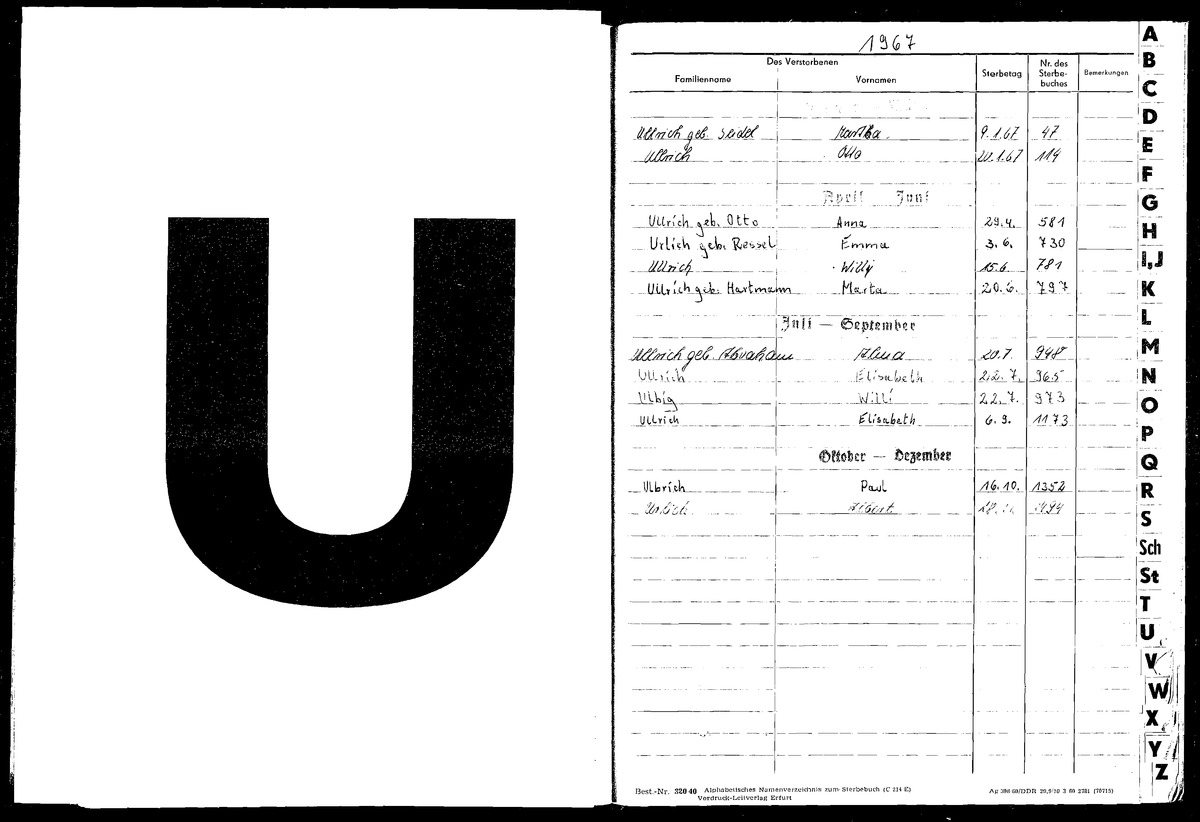 U
1967
Des Verstorbenen
Familienname Vornamen Sterbetag Nr. des Sterbe-buches Bemerkungen
Ullrich geb. Seidel Martha 9.1.67 47
Ullrich Otto 20.1.67 114
April Juni
Ullrich geb. Otto Anna 29.4. 581
Urlich geb. Ressel Emma 3.6. 730
Ullrich Willy 15.6. 781
Ullrich geb. Hartmann Marta 20.6. 797
Juli — September
Ullrich geb. Abraham Alma 20.7. 948
Ullrich Elisabeth 22.7. 965
Ulbig Willi 22.7. 973
Ullrich Elisabeth 6.9. 1173
Oktober — Dezember
Ulbrich Paul 16.10. 1352
Urlich Albert
Best.-Nr. 320 40 Alphabetisches Namenverzeichnis zum Sterbebuch (C 214 E)
Vordruck-Leitverlag Erfurt
A
B
C
D
E
F
G
H
I,J
K
L
M
N
O
P
Q
R
S
Sch
St
T
U
V
W
X
Y
Z